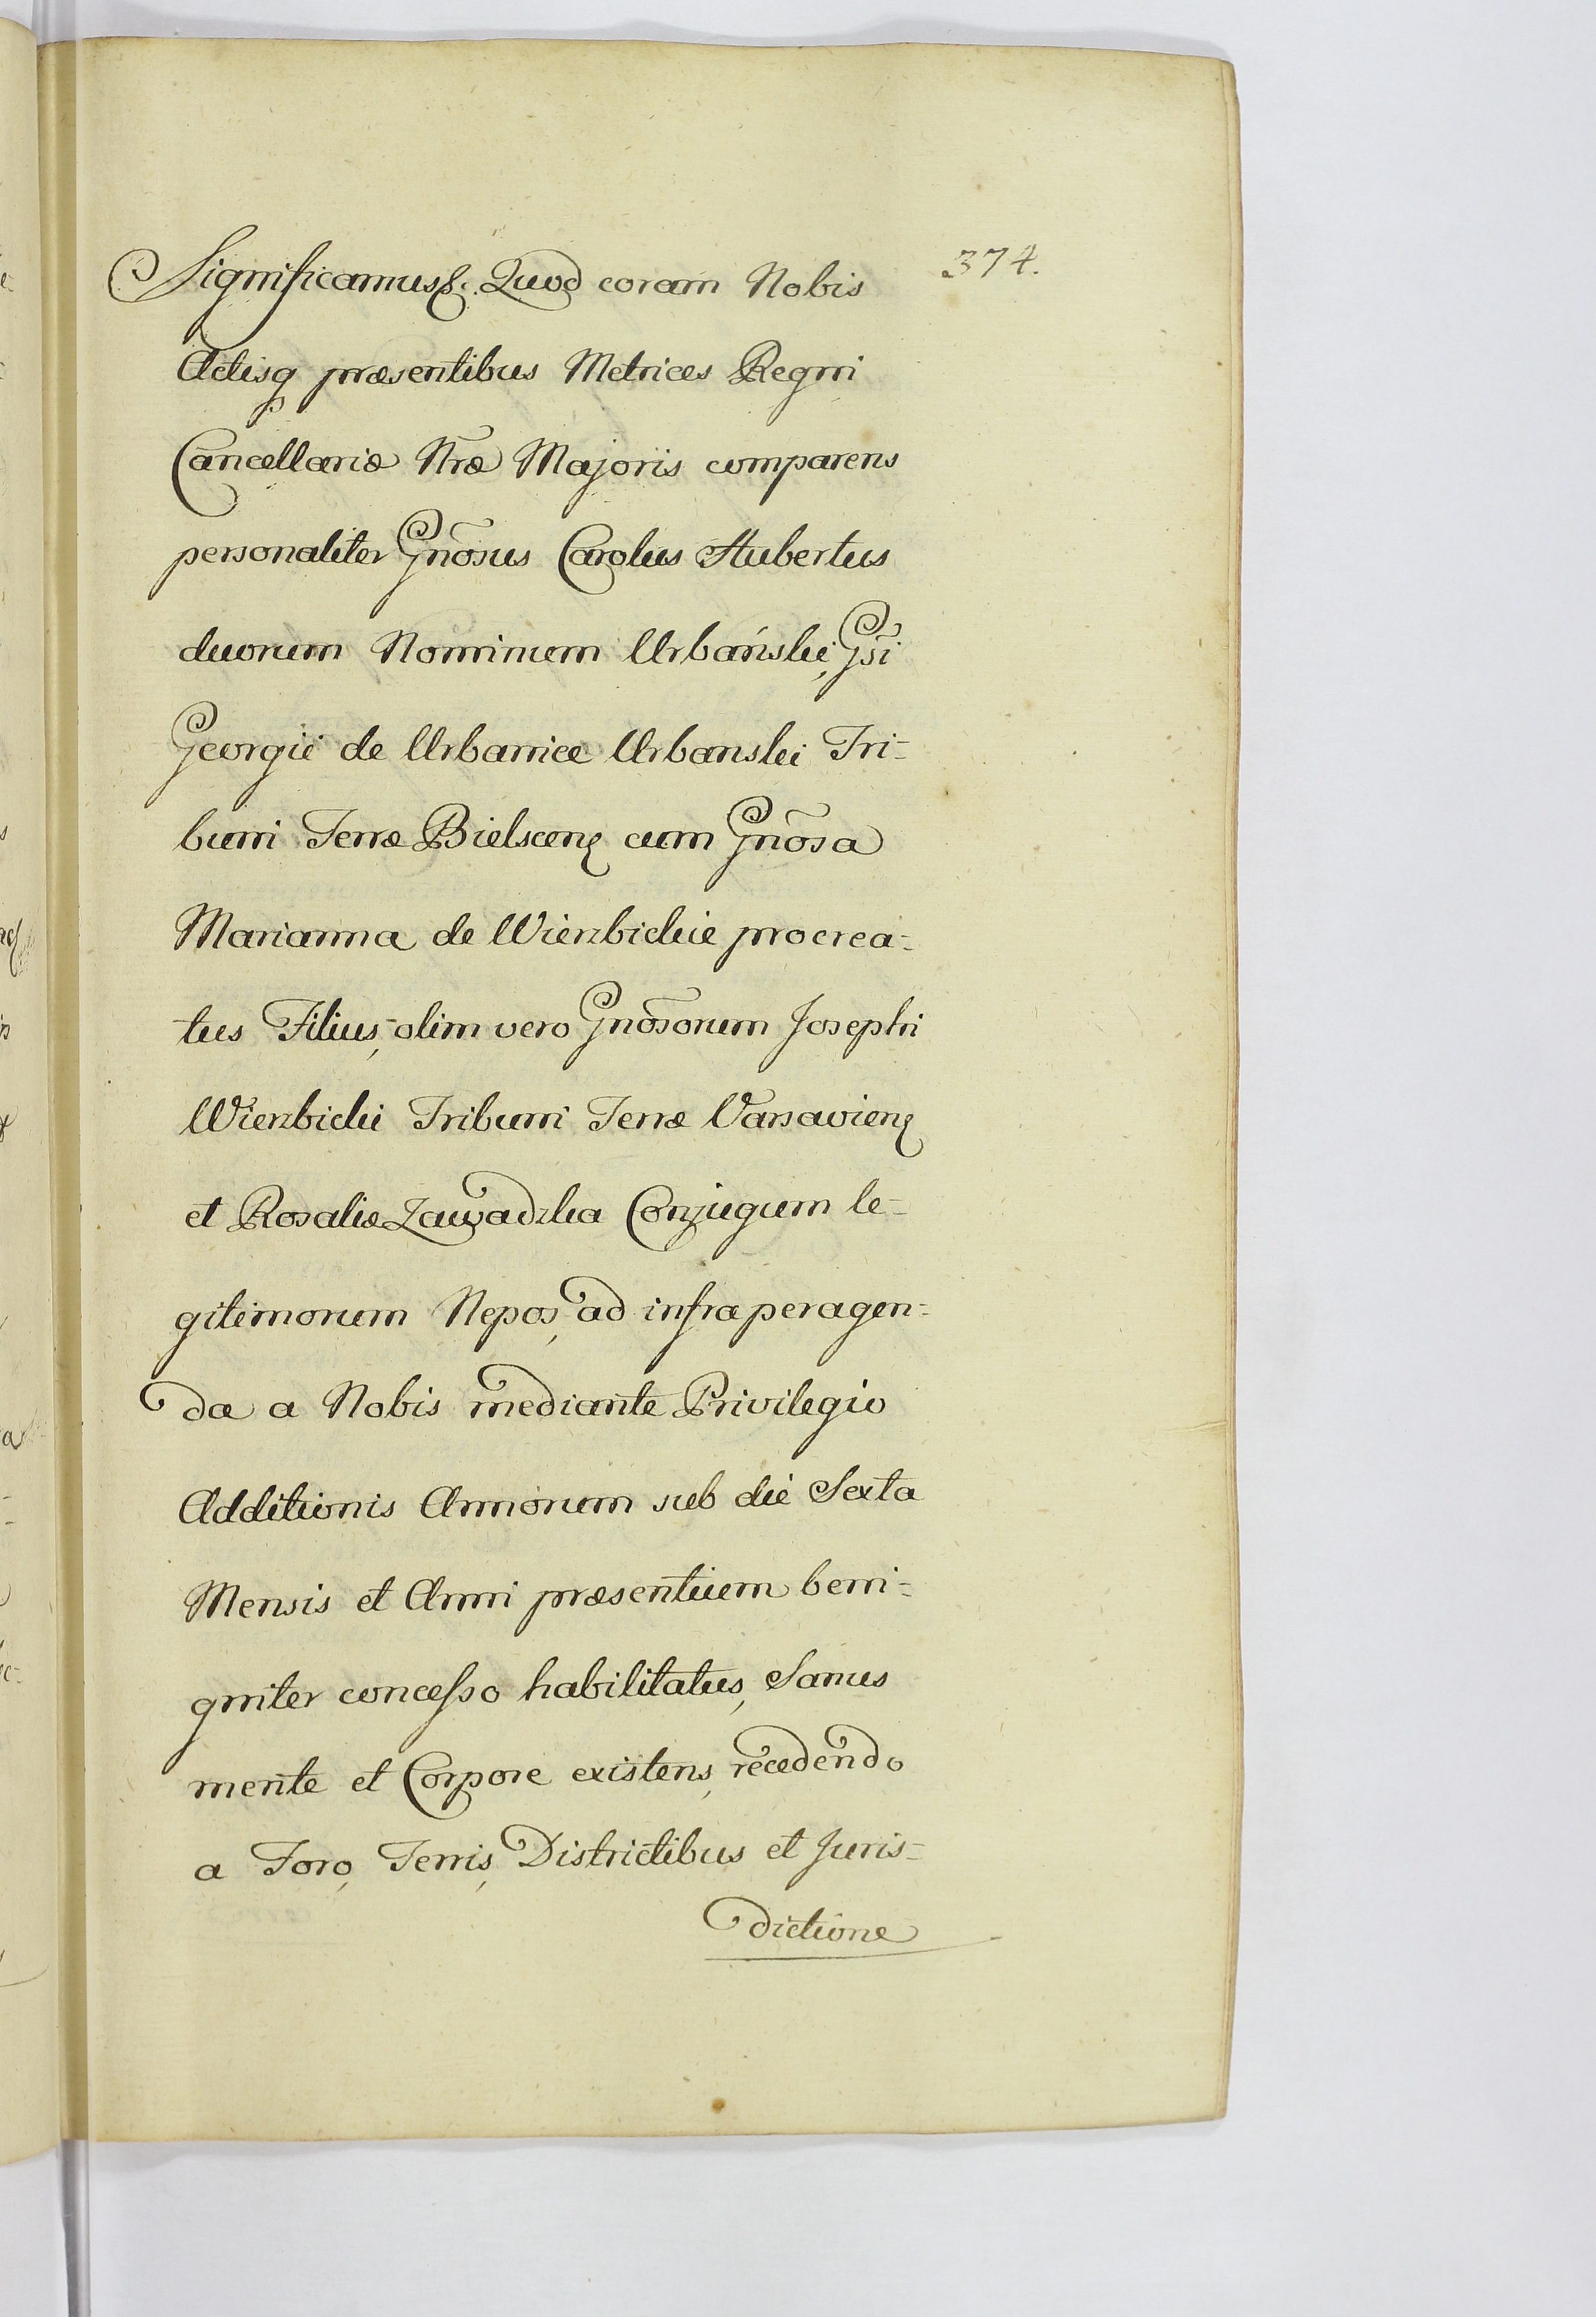 374.
Significamus &c. Quod coram Nobis
Actisq̃ præsentibus Metrices Regni
Cancellariæ Nræ Majoris comparens
personaliter Gnõsus Carolus Hubertus
duorum Nominum Urbański, Gsi
Georgii de Urbanice Urbanski Tri-
buni Terræ Bielscen̄ cum Gnõsa
Marianna de Wierzbickie procrea-
-tus Filius, olim vero Gnõsorum Josephi
Wierzbicki Tribuni Terræ Varsavien̄
et Rosaliæ Zawadzka Conjugum le-
gitimorum Nepos, ad infra peragen-
da a Nobis mediante Privilegio
Additionis Annorum sub die Sexta
Mensis et Anni præsentium beni-
gniter concesso habilitatus, Sanus
mente et Corpore existens, recedendo
a Foro, Terris, Districtibus et Juris-
dictione